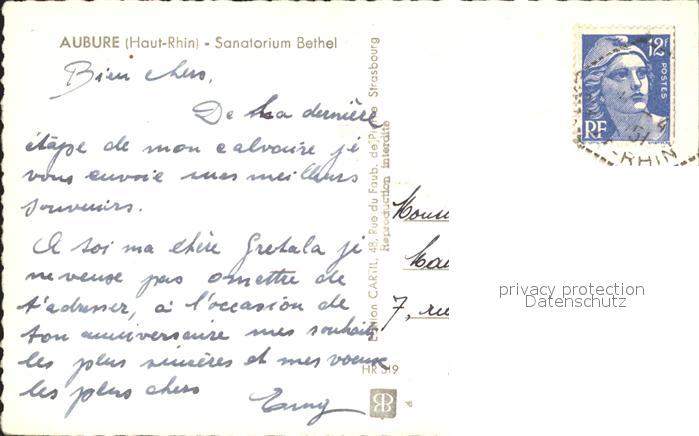 AUBURE (Haut-Rhin) - Sanatorium Bethel
Bien chers,
De la dernière
étape de mon calvaire je
vous envoie mes meilleurs
souvenirs.
A toi ma chère Gretala je
ne veux pas omettre de
t'adresser, à l'occasion de
ton anniversaire mes souhaits
les plus sincères et mes voeux
les plus chers
Edition CARTIL, 48, Rue du Faub. de Pierre Strasbourg
Reproduction interdite
HR 319
12F
POSTES
RF
-RHIN
7, rue
privacy protection
Datenschutz